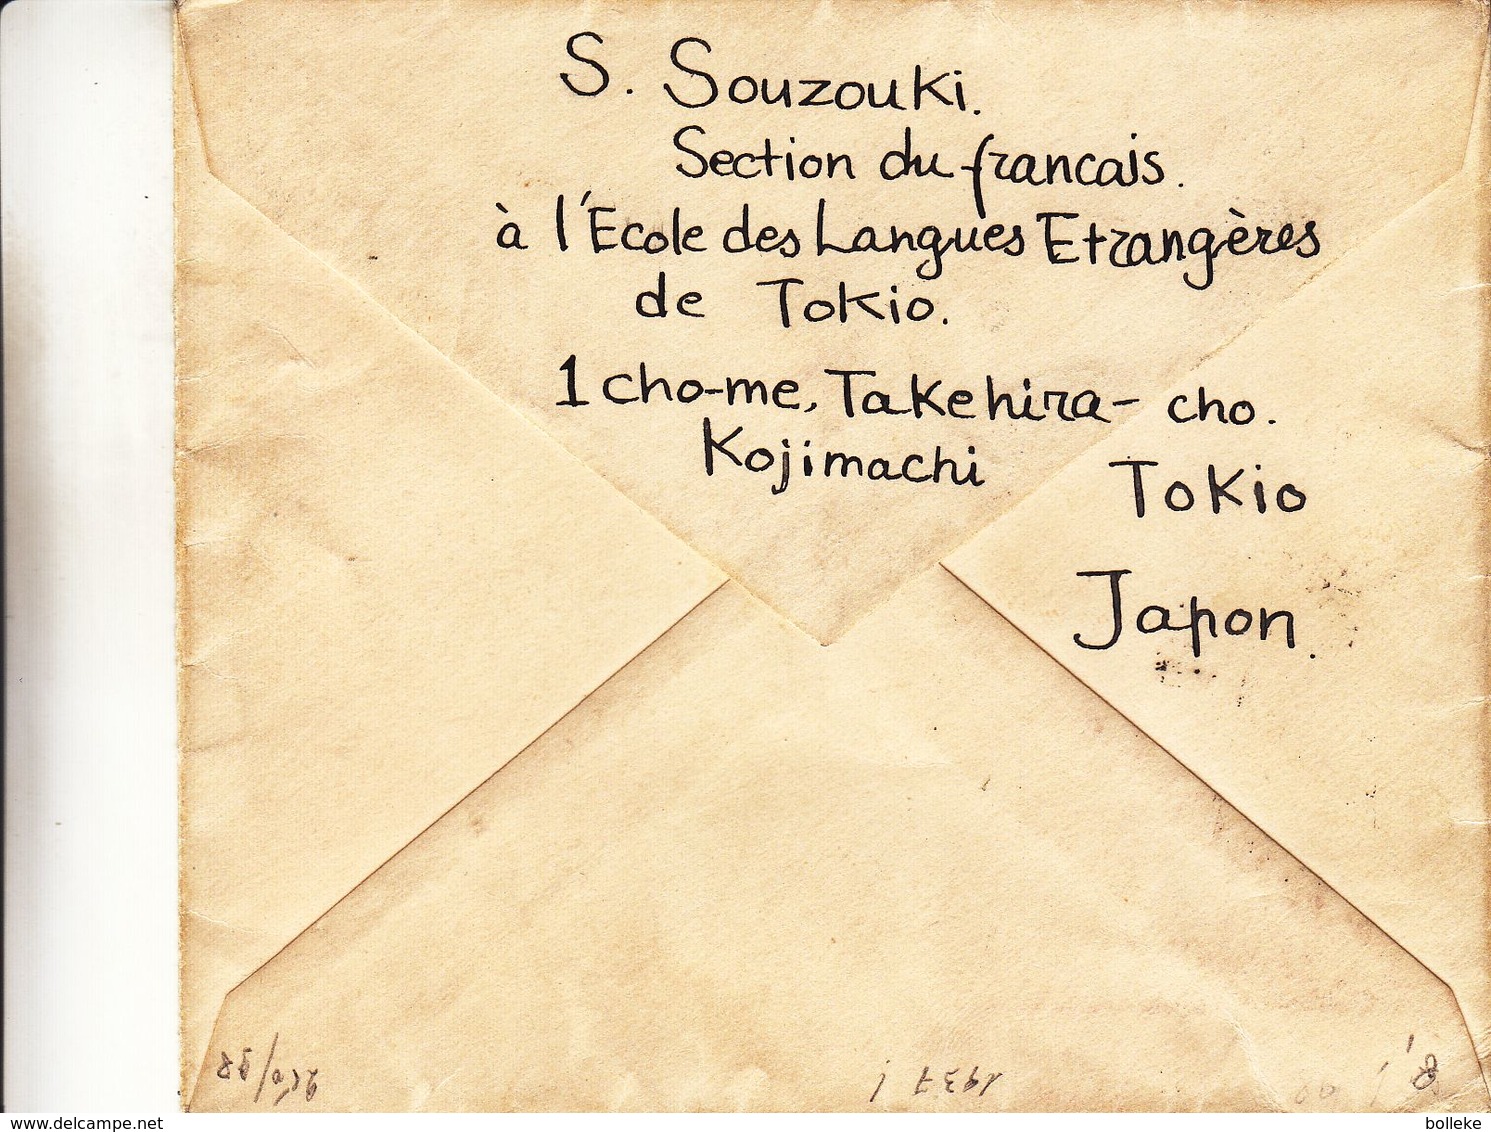 S. Souzouki.
Section du francais.
à l'Ecole des Langues Etrangères
de Tokio.
1 cho-me, Takehira-cho.
Kojimachi
Tokio
Japon.
1937
www.delcampe.net
bolleke